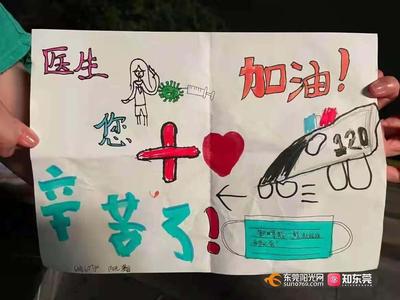 医生
加油！
您
120
辛苦了！
东莞阳光网
sun0769.com
知东莞